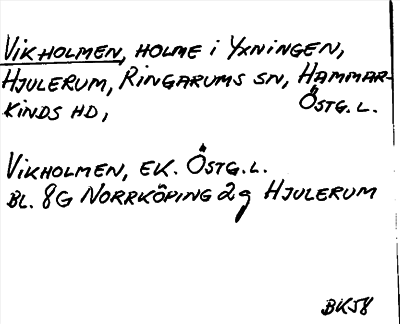 VIKHOLMEN, HOLME i YXNINGEN,
HJULERUM, RINGARUMS SN, HAMMAR-
KINDS HD, ÖSTG. L.
VIKHOLMEN, EK. ÖSTG. L.
BL. 8G NORRKÖPING 2g HJULERUM
BK58